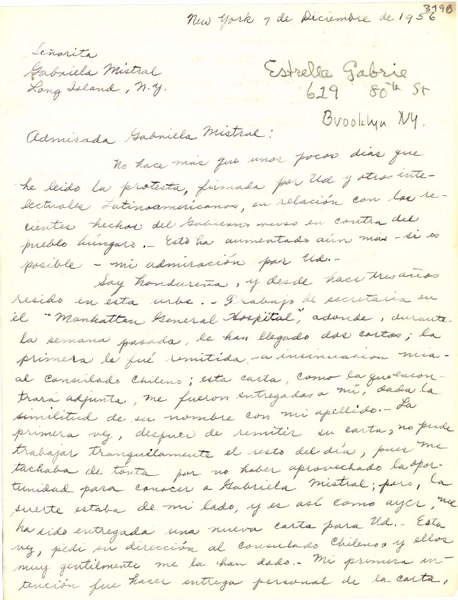 3790
New York 7 de Diciembre de 1956
Señorita
Gabriela Mistral
Long Island, N.Y.
Estrella Gabrie
629 80th St
Brooklyn NY.
Admirada Gabriela Mistral:
No hace más que unos pocos dias que
he leido la protesta, firmada por Ud y otros inte-
lectuales Latinoamericanos, en relación con los re-
cientes hechos del Gobierno ruso en contra del
pueblo hungaro.- Esto ha aumentado aún mas - si es
posible - mi admiración por Ud.-
Soy hondureña, y desde hace tres años
resido en esta urbe.- Trabajo de secretaria en
el "Manhattan General Hospital", adonde, durante
la semana pasada, le han llegado dos cartas; la
primera le fué remitida - a insinuacion mia -
al consulado Chileno; esta carta, como la que encon-
trara adjunta, me fueron entregadas a mí, dada la
similitud de su nombre con mi apellido.- La
primera vez, despues de remitir su carta, no pude
trabajar tranquilamente el resto del día, pues me
tachaba de tonta por no haber aprovechado la opor-
tunidad para conocer a Gabriela Mistral; pero, la
suerte estaba de mi lado, y es así como ayer, me
ha sido entregada una nueva carta para Ud.- Esta
vez, pedi su dirección al consulado Chileno, y ellos
muy gentilmente me la han dado.- Mi primera in-
tención fue hacer entrega personal de la carta,